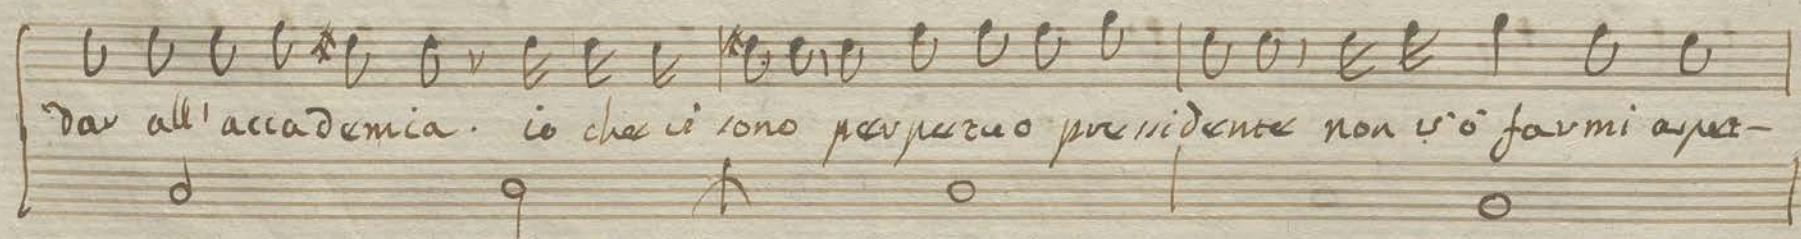 dar all'accademia. io che vi sono perpetuo pressidente non vò farmi aspet-